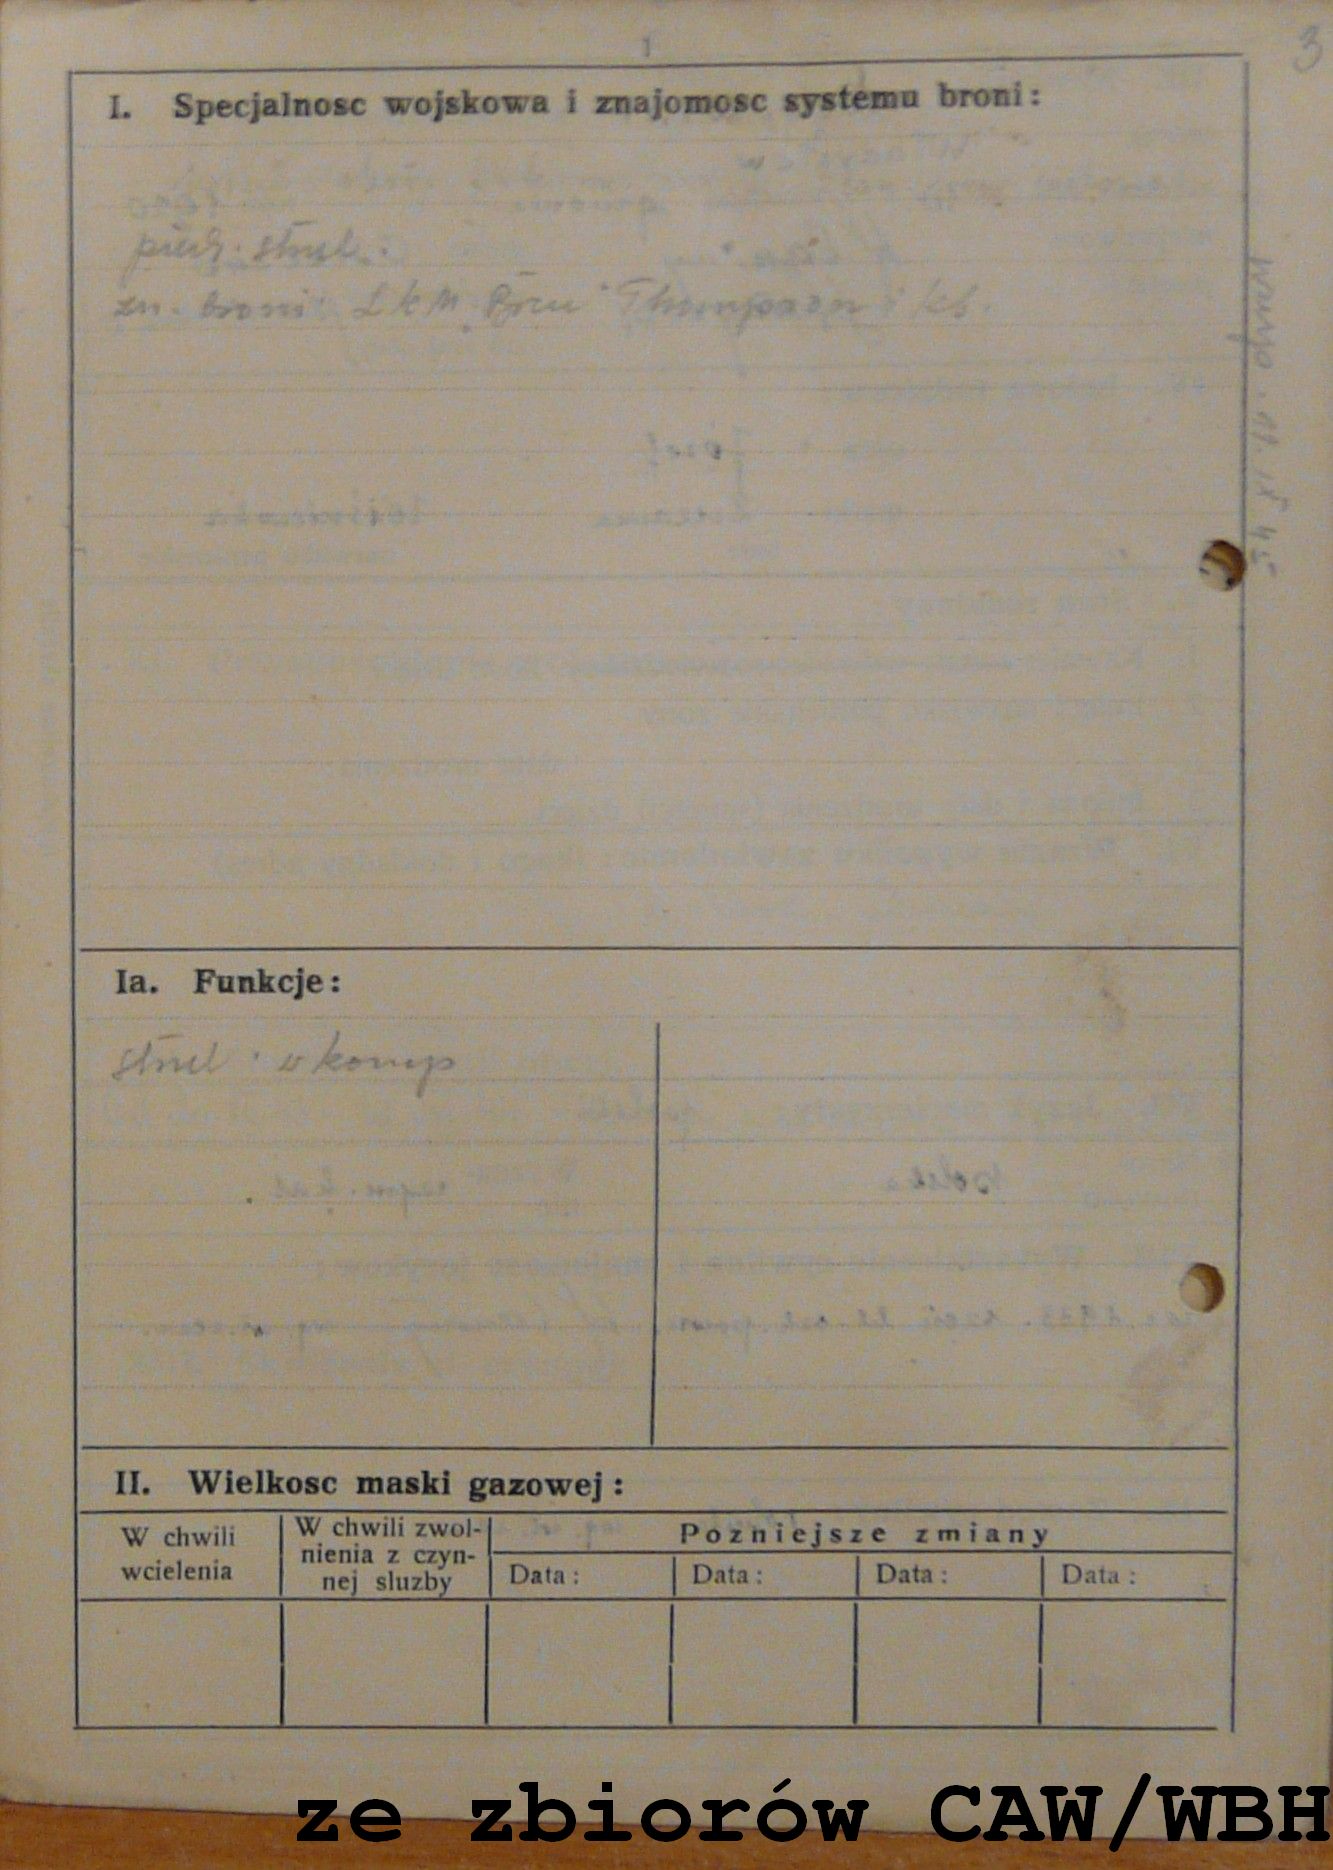 1
3
I. Specjalnosc wojskowa i znajomosc systemu broni:
piech. strzel.
zn. broni: LKM. Bren Thompson i kb.
11. IX 45
Ia. Funkcje:
strzel. w komp
II. Wielkosc maski gazowej:
W chwili
wcielenia
W chwili zwol-
nienia z czyn-
nej sluzby
Pozniejsze zmiany
Data:
Data:
Data:
Data:
ze zbiorów CAW/WBH